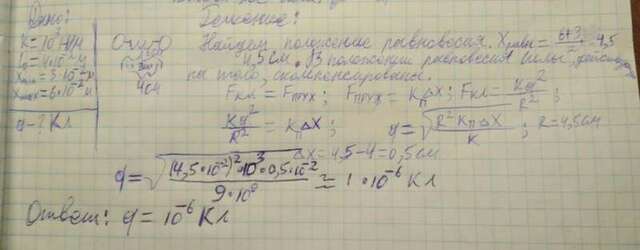 Дано:
Решение:
K = 10³ Н/м
l₀ = 4·10⁻² м
Xmin = 3·10⁻² м
Xmax = 6·10⁻² м
q - ? Кл
Найдем положение равновесия. Xравн = (6+3)/2 = 4,5
4,5 см. В положении равновесия силы, действующие
на тело, скомпенсированы.
Fкл = Fпруж; Fпруж = KпΔX; Fкл = Kq²/R²;
Kq²/R² = KпΔX; q = √(R²KпΔX/K); R = 4,5 см
ΔX = 4,5 - 4 = 0,5 см
q = √((4,5·10⁻²)²·10³·0,5·10⁻²/9·10⁹) ≅ 1·10⁻⁶ Кл
Ответ: q = 10⁻⁶ Кл